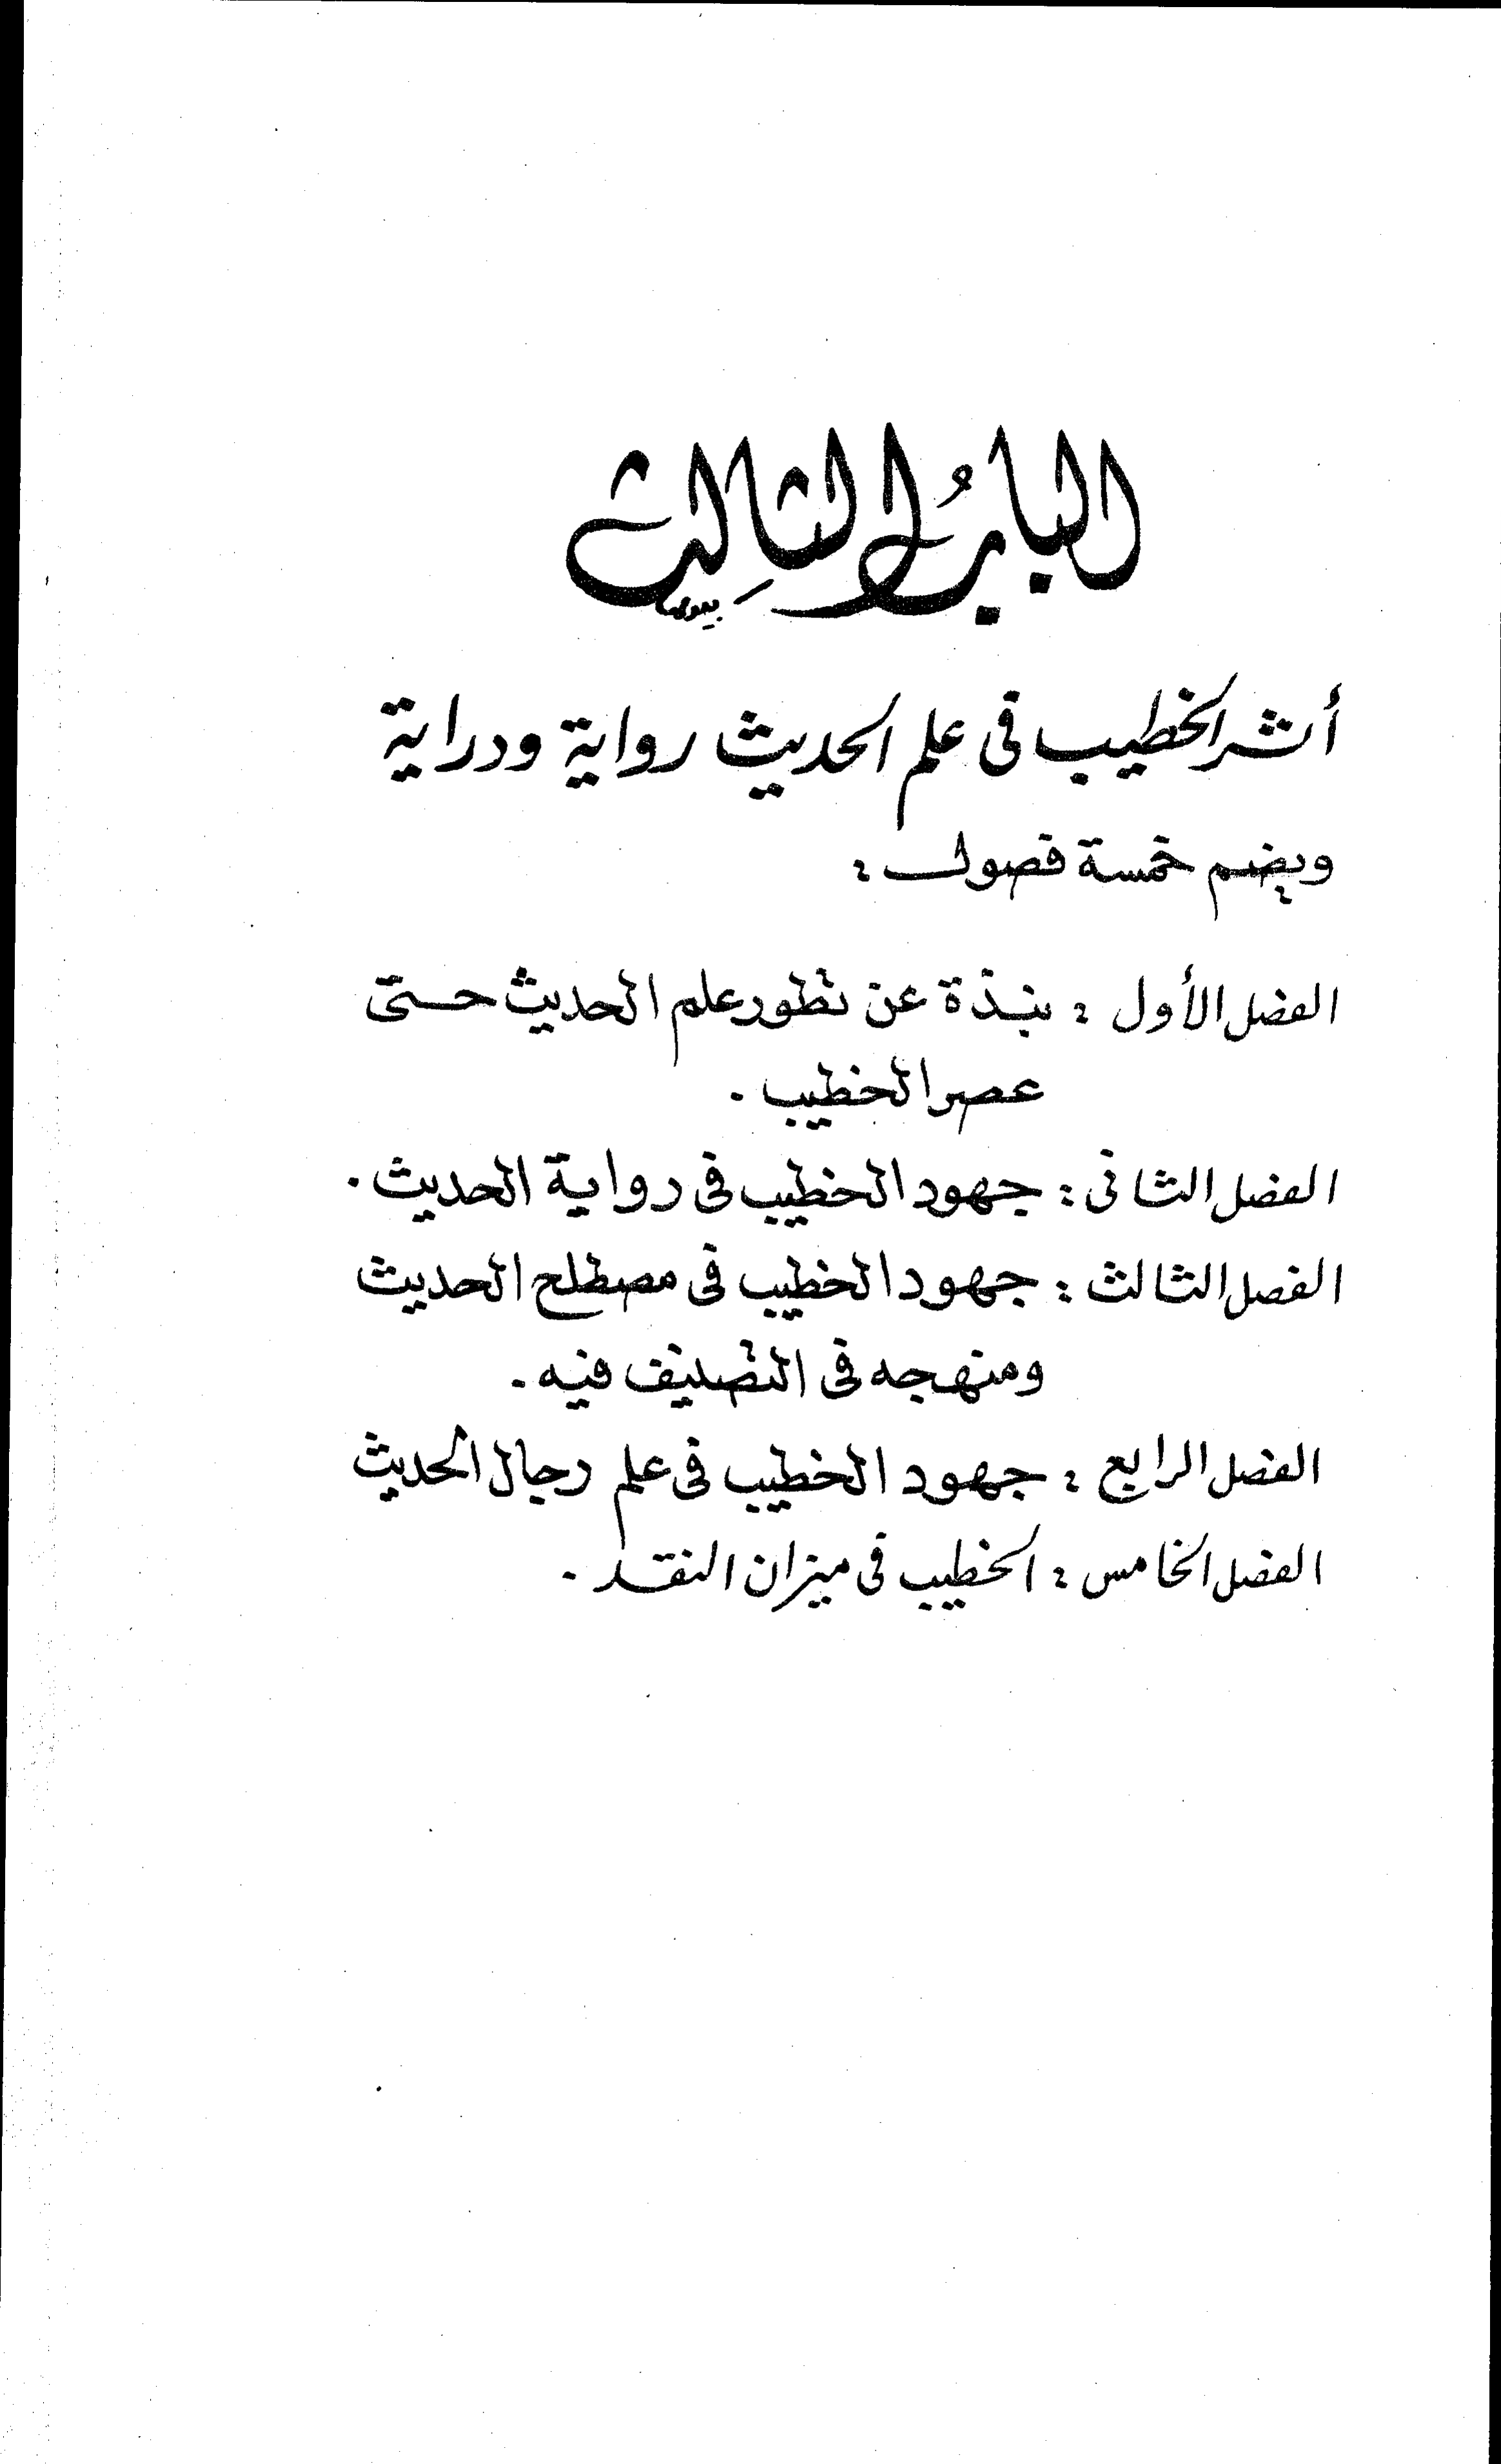 البابُ الثالِث
أثر الخطيب فى علم الحديث رواية ودراية
ويضم خمسة فصول :
الفصل الأول : نبذة عن تطور علم الحديث حتى
عصر الخطيب .
الفصل الثانى : جهود الخطيب فى رواية الحديث .
الفصل الثالث : جهود الخطيب فى مصطلح الحديث
ومنهجه فى التصنيف فيه .
الفصل الرابع : جهود الخطيب فى علم رجال الحديث
الفصل الخامس : الخطيب فى ميزان النقد .